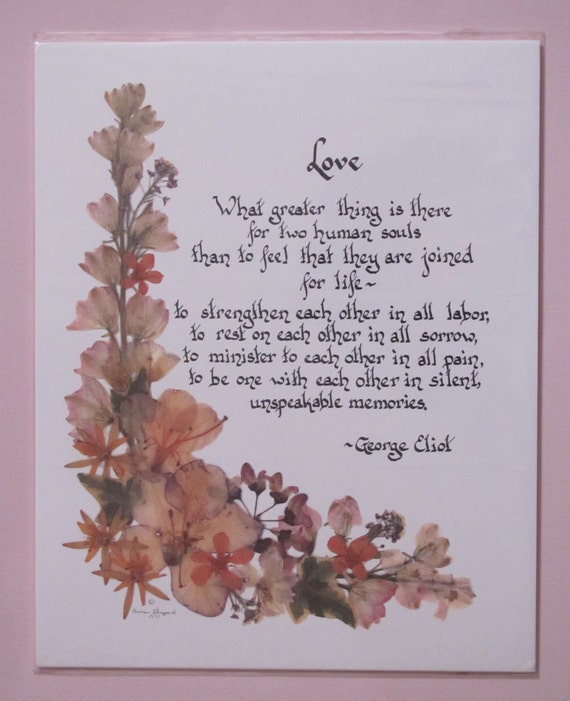 Love
What greater thing is there
for two human souls
than to feel that they are joined
for life~
to strengthen each other in all labor,
to rest on each other in all sorrow,
to minister to each other in all pain,
to be one with each other in silent,
unspeakable memories.
~George Eliot
©